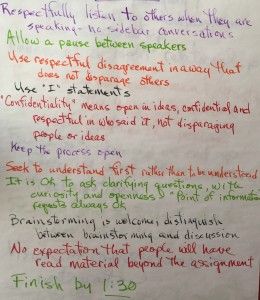 Respectfully listen to others when they are
speaking - no sidebar conversations
Allow a pause between speakers
Use respectful disagreement in a way that
does not disparage others
Use "I" statements
"Confidentiality" means open in ideas, confidential, and
respectful in who said it, not disparaging
people or ideas
Keep the process open
Seek to understand first rather than to be understood
It is Ok to ask clarifying questions, with
curiosity and openness - "Point of information"
requests always Ok
Brainstorming is welcome, distinguish
between brainstorming and discussion
No expectation that people will have
read material beyond the assignment
Finish by 1:30